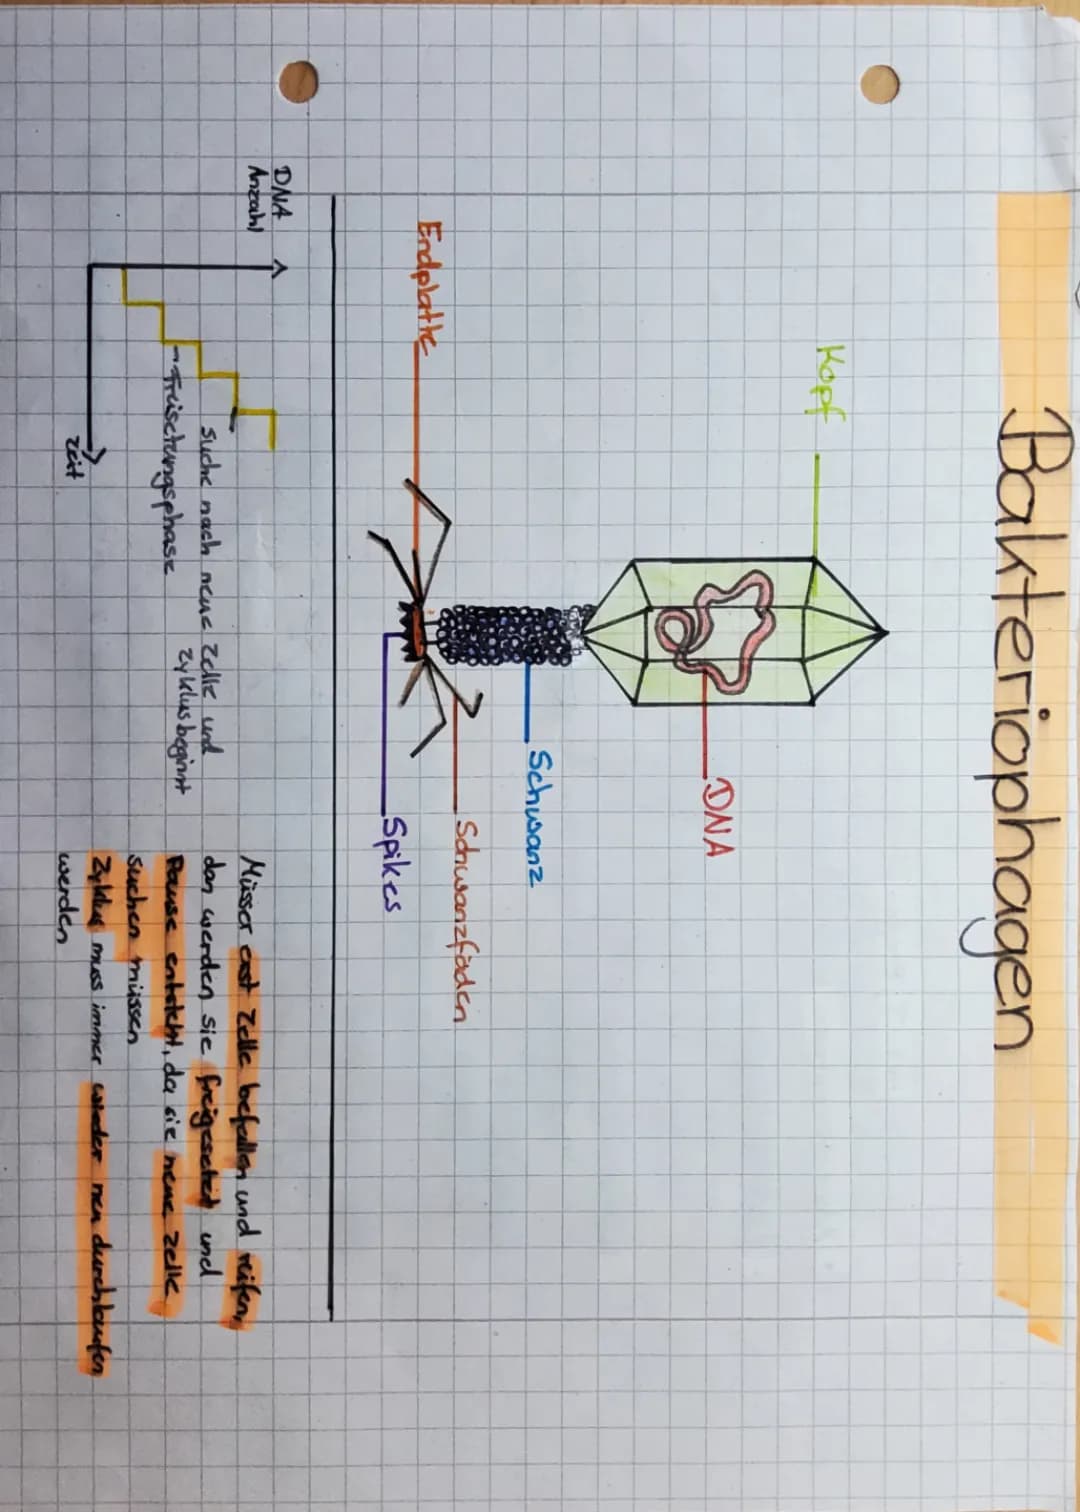 Bakteriophagen
Kopf
DNA
Schwanz
Schwanzfäden
Endplatte
Spikes
DNA
Anzahl
suche nach neue Zelle und
Zyklus beginnt
Freisetungsphase
Zeit
Müsser erst Zelle befallen und reifen,
dan werden sie freigesetzt und
Pause entsteht, da sie neue Zelle
suchen müssen
Zyklus muss immer wieder neu durchlaufen
werden